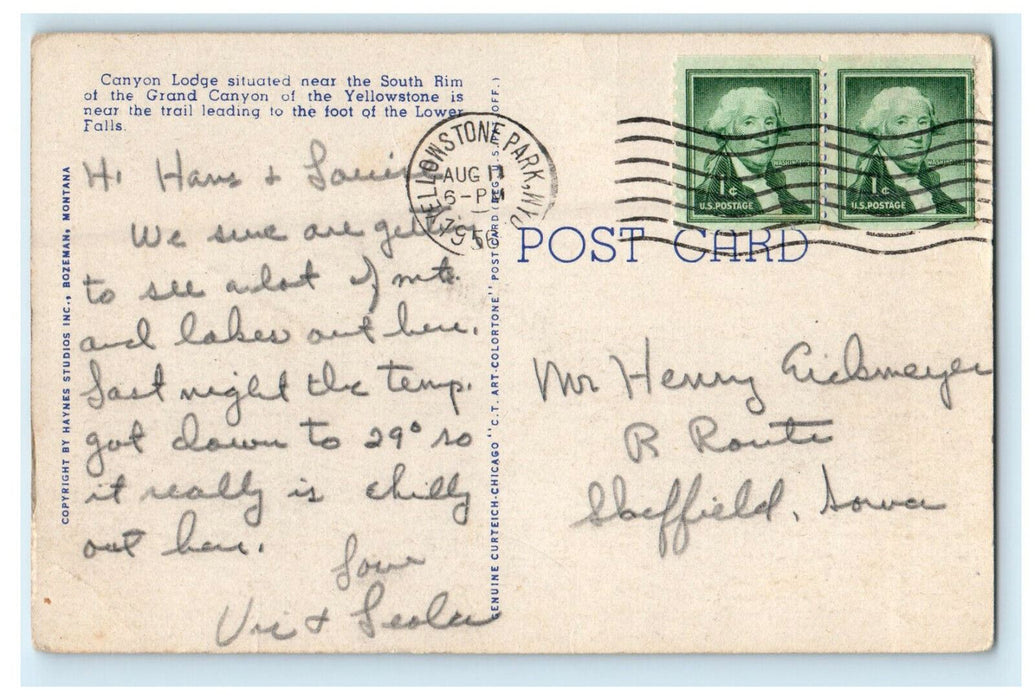 Canyon Lodge situated near the South Rim
of the Grand Canyon of the Yellowstone is
near the trail leading to the foot of the Lower
Falls.
Hi Hans + Louise
We sure are getting
to see a lot of mts.
and lakes out here.
Last night the temp.
got down to 29° so
it really is chilly
out here.
Love
Vic + Leola
COPYRIGHT BY HAYNES STUDIOS INC., BOZEMAN, MONTANA
GENUINE CURTEICH-CHICAGO "C.T. ART-COLORTONE" POST CARD (REG. U.S. PAT. OFF.)
YELLOWSTONE PARK, WYO
AUG 11
6-PM
1956
WASHINGTON
1¢
U.S. POSTAGE
WASHINGTON
1¢
U.S. POSTAGE
POST CARD
Mr Henry Eickmeyer
R Route
Sheffield, Iowa